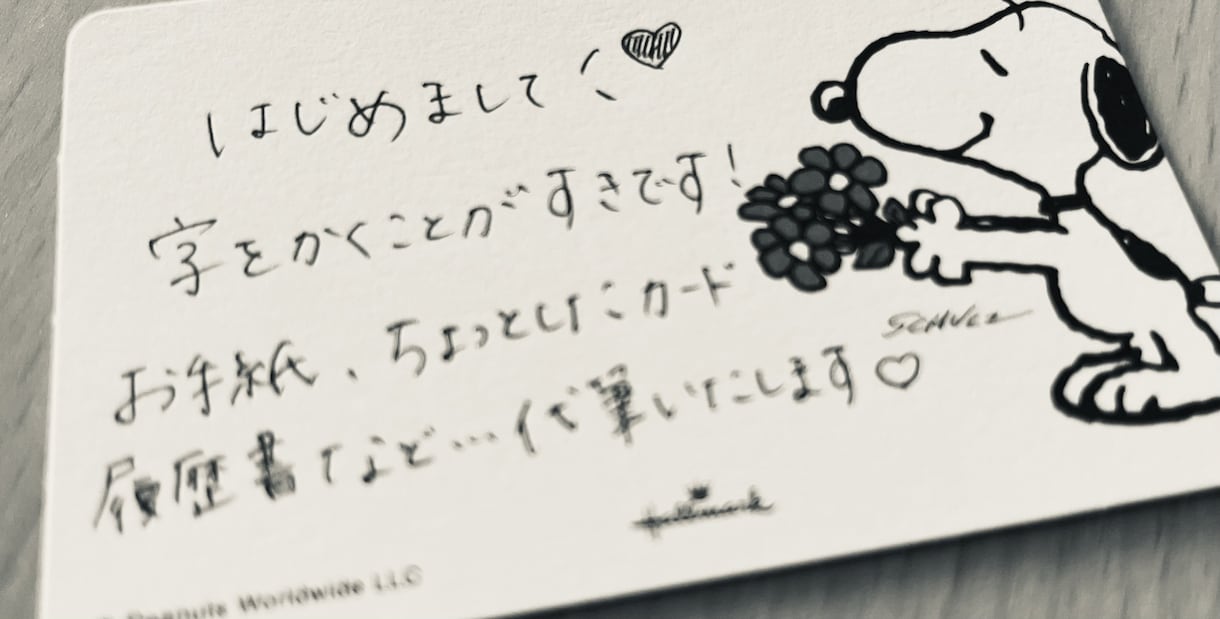 はじめまして ♥
字をかくことがすきです！
お手紙、ちょっとしたカード
履歴書など…代筆いたします♡
SCHULZ
Hallmark
Peanuts Worldwide LLC